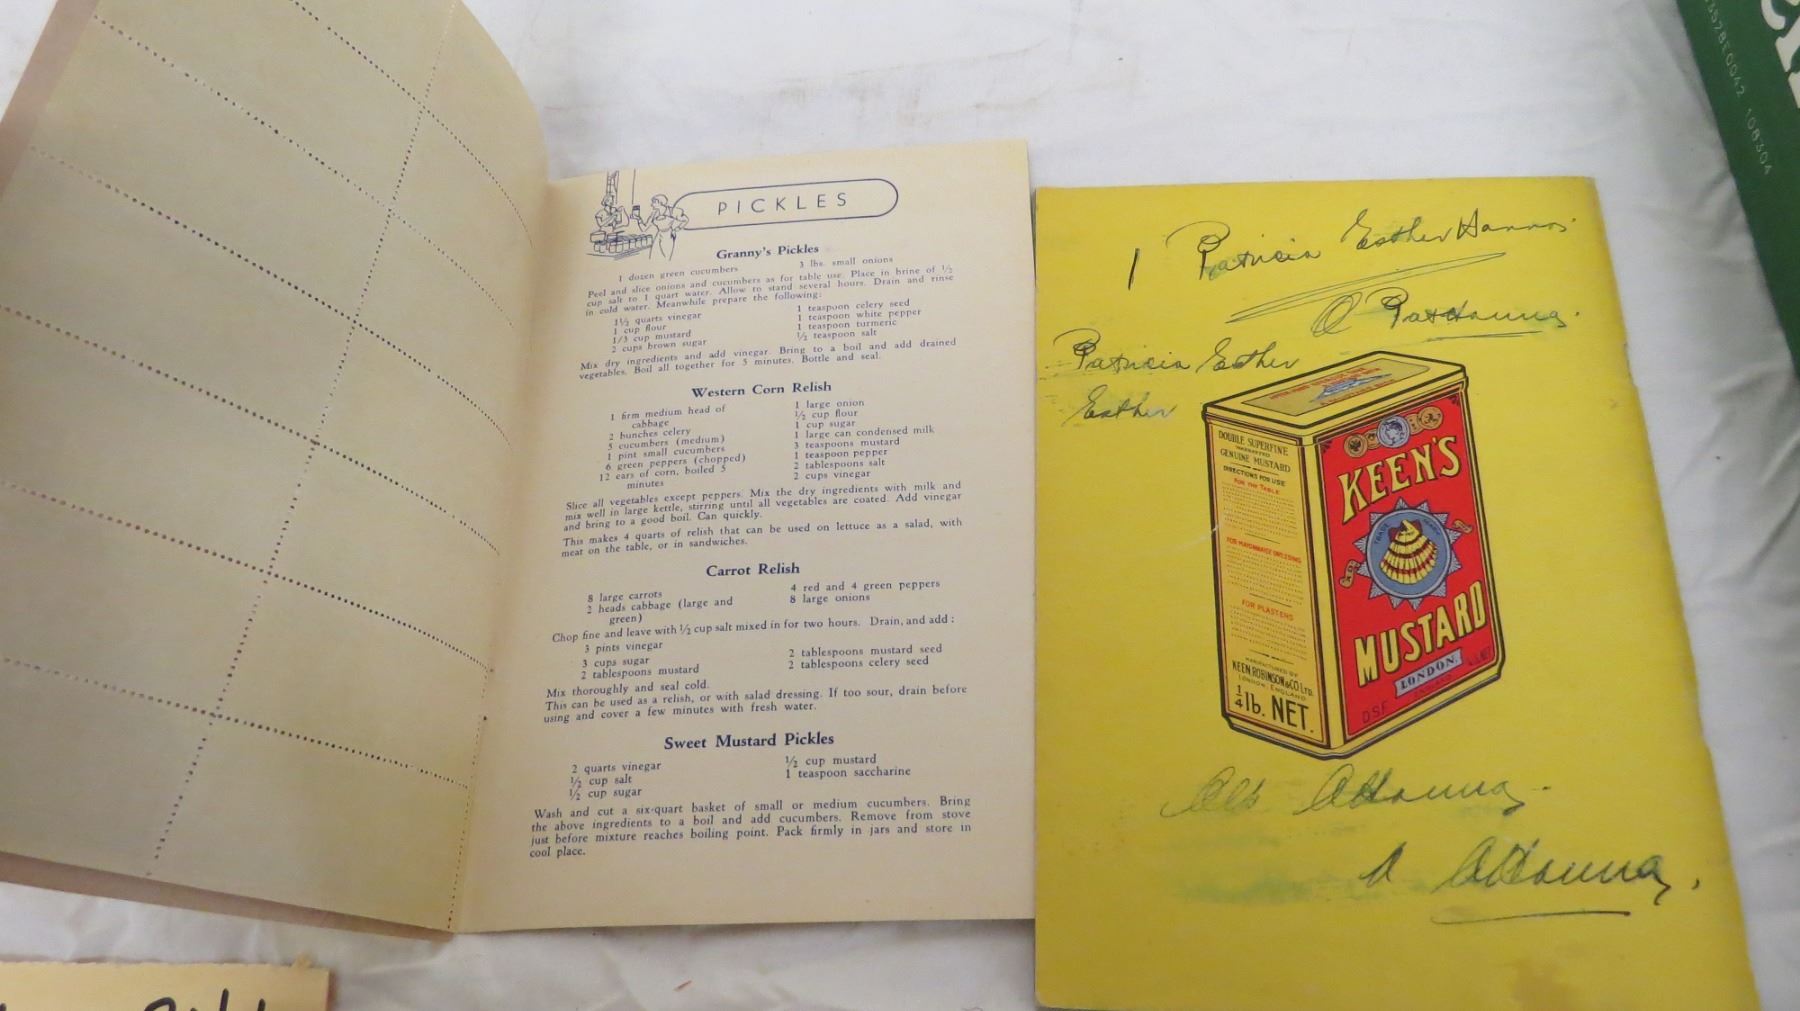 PICKLES
Granny's Pickles
1 dozen green cucumbers
3 lbs. small onions
Peel and slice onions and cucumbers as for table use. Place in brine of ½
cup salt to 1 quart water. Allow to stand several hours. Drain and rinse
in cold water. Meanwhile prepare the following:
1½ quarts vinegar
1 cup flour
1/3 cup mustard
2 cups brown sugar
1 teaspoon celery seed
1 teaspoon white pepper
1 teaspoon turmeric
½ teaspoon salt
Mix dry ingredients and add vinegar. Bring to a boil and add drained
vegetables. Boil all together for 5 minutes. Bottle and seal.
Western Corn Relish
1 firm medium head of
cabbage
2 bunches celery
5 cucumbers (medium)
1 pint small cucumbers
6 green peppers (chopped)
12 ears of corn, boiled 5
minutes
1 large onion
½ cup flour
1 cup sugar
1 large can condensed milk
3 teaspoons mustard
1 teaspoon pepper
2 tablespoons salt
2 cups vinegar
Slice all vegetables except peppers. Mix the dry ingredients with milk and
mix well in large kettle, stirring until all vegetables are coated. Add vinegar
and bring to a good boil. Can quickly.
This makes 4 quarts of relish that can be used on lettuce as a salad, with
meat on the table, or in sandwiches.
Carrot Relish
8 large carrots
2 heads cabbage (large and
green)
4 red and 4 green peppers
8 large onions
Chop fine and leave with ½ cup salt mixed in for two hours. Drain, and add:
3 pints vinegar
3 cups sugar
2 tablespoons mustard
2 tablespoons mustard seed
2 tablespoons celery seed
Mix thoroughly and seal cold.
This can be used as a relish, or with salad dressing. If too sour, drain before
using and cover a few minutes with fresh water.
Sweet Mustard Pickles
2 quarts vinegar
½ cup salt
½ cup sugar
½ cup mustard
1 teaspoon saccharine
Wash and cut a six-quart basket of small or medium cucumbers. Bring
the above ingredients to a boil and add cucumbers. Remove from stove
just before mixture reaches boiling point. Pack firmly in jars and store in
cool place.
Patricia Esther Hanna
Pat Hanna.
Patricia Esther
Esther
DOUBLE SUPERFINE
GENUINE MUSTARD
DIRECTIONS FOR USE
FOR THE TABLE
FOR MAYONNAISE DRESSING
FOR PLASTERS
MANUFACTURED BY
KEEN ROBINSON & CO LTD.
LONDON, ENGLAND
¼ lb. NET.
KEEN'S
TRADE MARK
MUSTARD
LONDON.
D.S.F.
Hanna.
Hanna.
108304